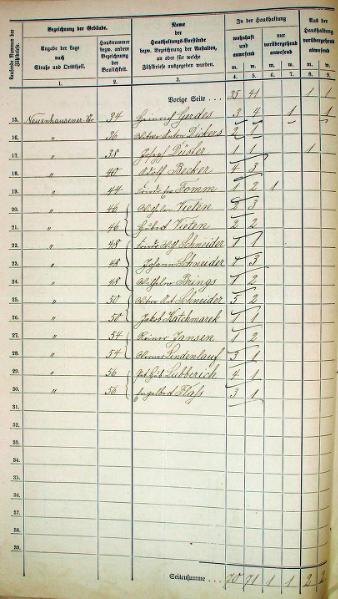 Laufende Nummer der Zählbriefe.
Bezeichnung der Gebäude.
Angabe der Lage nach Straße und Ortsteil.
Hausnummer bezw. andere Bezeichnung der Baulichkeit.
Name der Haushaltungs-Vorstände bezw. Bezeichnung der Anstalten, an oder für welche Zählbriefe ausgegeben wurden.
In der Haushaltung
wohnhaft und anwesend
nur vorübergehend anwesend
Aus der Haushaltung
1. 2. 3. 4. 5. 6. 7. 8. 9.
Vorige Seite ... 35 41 1 1
15. 34 Heinrich Gerdes 3 4 1 1
16. " 36 2 1
17. " 38 Josef 1 1 1
18. " 40 Adolf Becker 4 3
19. " 44 1 2 1
20. " 46 Wilhelm Vieten 3 3
21. " 46 Vieten 2 2
22. " 48 Schneider 1 1
23. " 48 Johann Schneider 1 3
24. " 48 Wilhelm Brings 1 2
25. " 50 Schneider 5 2
26. " 50 Jakob Katchmarek 1 1
27. " 54 Reiner Jansen 1 2
28. " 54 Lindenlauf 3 1
29. " 56 Lubberich 4 1
30. " 56 Engelbert Flaß 3 1
31.
32.
33.
34.
35.
36.
37.
38.
39.
Seitensumme .... 70 71 1 1 2 2